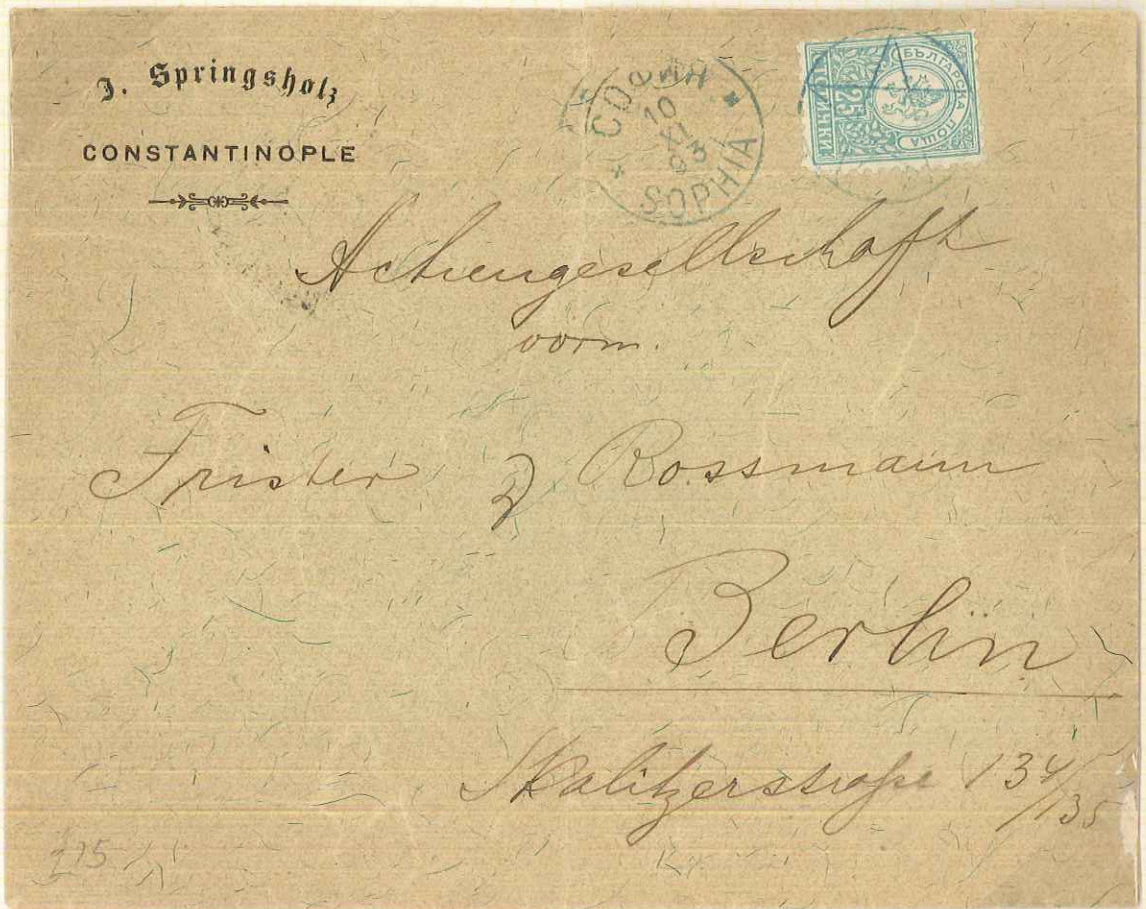 J. Springsholz
CONSTANTINOPLE
СОФИЯ
10
XI
93
SOPHIA
БЪЛГАРСКА ПОЩА
25
Actiengesellschaft
vorm.
Frister & Rossmann
Berlin
Skalitzerstraße 134/135
£15